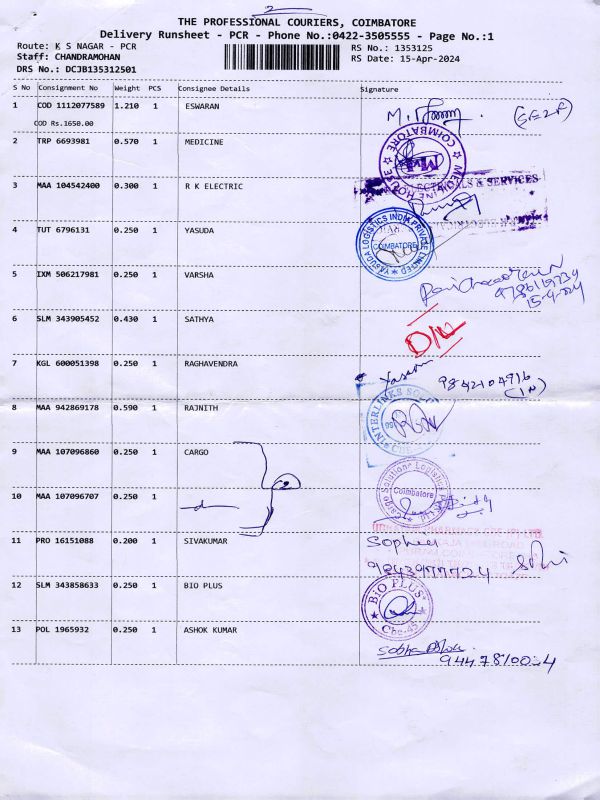 2
THE PROFESSIONAL COURIERS, COIMBATORE
Delivery Runsheet - PCR - Phone No.:0422-3505555 - Page No.:1
Route: K S NAGAR - PCR
RS No.: 1353125
Staff: CHANDRAMOHAN
RS Date: 15-Apr-2024
DRS No.: DCJB135312501
S No Consignment No Weight PCS Consignee Details Signature
1 COD 1112077589 1.210 1 ESWARAN
COD Rs.1650.00
2 TRP 6693981 0.570 1 MEDICINE
COIMBATORE
3 MAA 104542400 0.300 1 R K ELECTRIC
& SERVICES
4 TUT 6796131 0.250 1 YASUDA
YASUDA LOGISTICS INDIA PRIVATE LIMITED
COIMBATORE
5 IXM 506217981 0.250 1 VARSHA
15-4-2024
6 SLM 343905452 0.430 1 SATHYA
D/L
7 KGL 600051398 0.250 1 RAGHAVENDRA
9842104916
8 MAA 942869178 0.590 1 RAJNITH
INTERLINKS
9 MAA 107096860 0.250 1 CARGO
2
Cargo Solution Logistics
Coimbatore
10 MAA 107096707 0.250 1
11 PRO 16151088 0.200 1 SIVAKUMAR
Sophia
12 SLM 343858633 0.250 1 BIO PLUS
BIO PLUS
Cbe-45
13 POL 1965932 0.250 1 ASHOK KUMAR